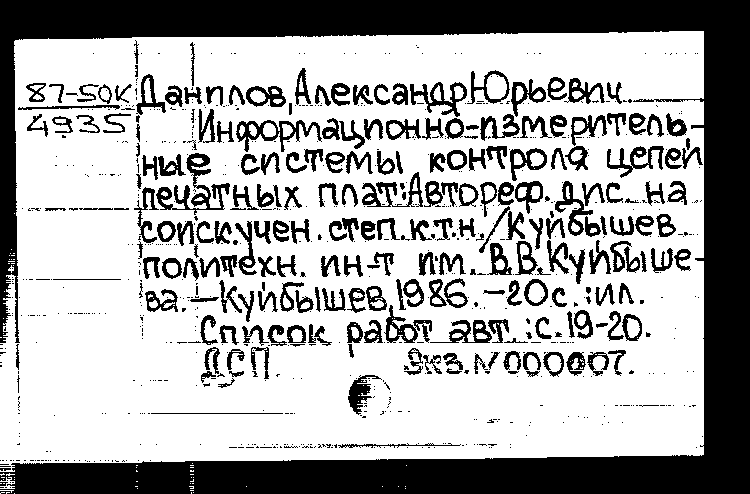 87-50К
4935
Данилов, Александр Юрьевич
Информационно-измеритель-
ные системы контроля цепей
печатных плат: Автореф. дис. на
соиск. учен. степ. к.т.н. / Куйбышев.
политехн. ин-т им. В.В. Куйбыше-
ва. — Куйбышев, 1986. — 20 с. : ил.
Список работ авт. : с. 19-20.
ДСП Экз. N 000007.